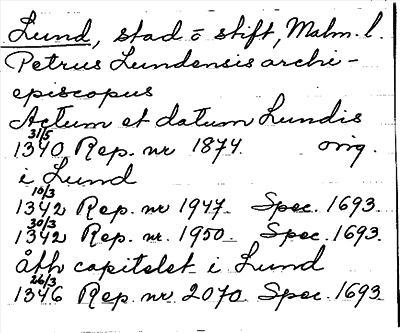 Lund, stad o stift, Malm. l.
Petrus Lundensis archi-
episcopus
Actum et datum Lundis
31/5
1340 Rep. nr 1874. orig.
i Lund
10/3
1342 Rep. nr 1947. Spec. 1693.
30/3
1342 Rep. nr. 1950. Spec. 1693.
åth capitelet i Lund
26/3
1346 Rep. nr. 2070. Spec. 1693